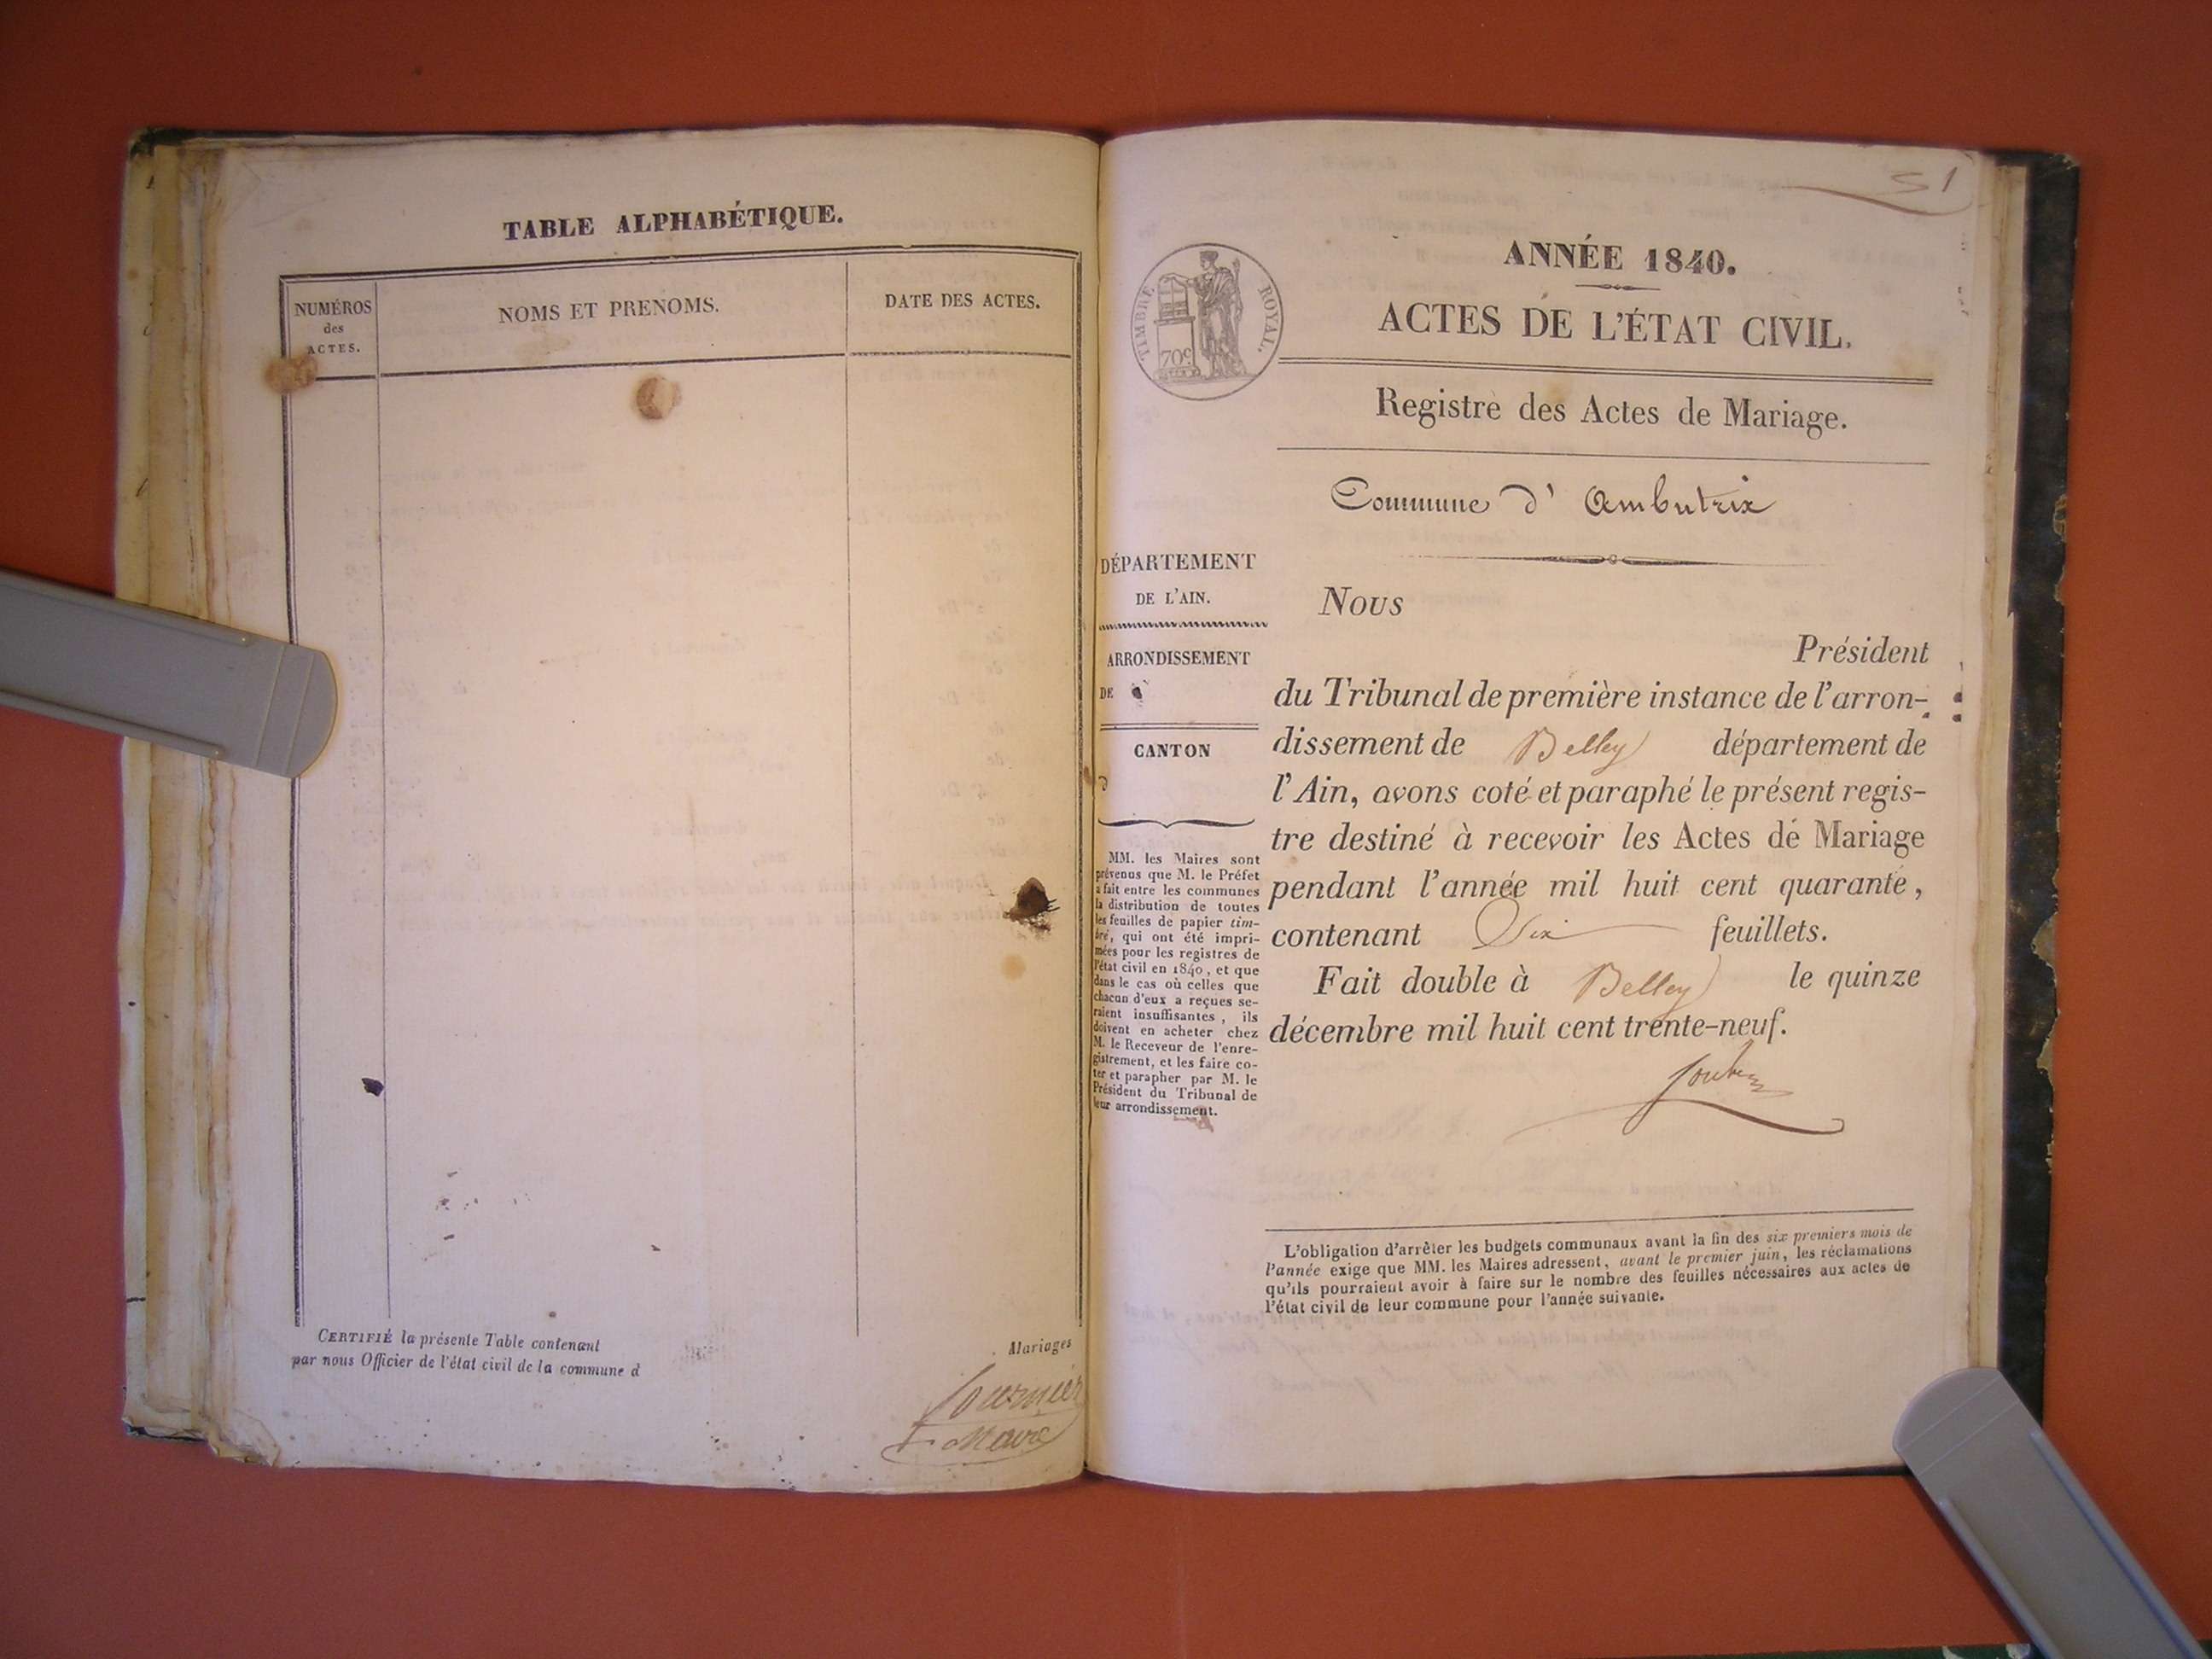 TABLE ALPHABÉTIQUE.
NUMÉROS
des
ACTES.
NOMS ET PRENOMS.
DATE DES ACTES.
CERTIFIÉ la présente Table contenant
Mariages
par nous Officier de l'état civil de la commune d
Fournier
Maire
1
TIMBRE ROYAL.
70c
ANNÉE 1840.
ACTES DE L'ÉTAT CIVIL.
Registre des Actes de Mariage.
Commune d' Ambutrix
DÉPARTEMENT
DE L'AIN.
ARRONDISSEMENT
DE
CANTON
d
MM. les Maires sont
prévenus que M. le Préfet
a fait entre les communes
la distribution de toutes
les feuilles de papier tim-
bré, qui ont été impri-
mées pour les registres de
l'état civil en 1840, et que
dans le cas où celles que
chacun d'eux a reçues se-
raient insuffisantes, ils
doivent en acheter chez
M. le Receveur de l'enre-
gistrement, et les faire co-
ter et parapher par M. le
Président du Tribunal de
leur arrondissement.
Nous
Président
du Tribunal de première instance de l'arron-
dissement de Belley département de
l'Ain, avons coté et paraphé le présent regis-
tre destiné à recevoir les Actes de Mariage
pendant l'année mil huit cent quarante,
contenant Six feuillets.
Fait double à Belley le quinze
décembre mil huit cent trente-neuf.
L'obligation d'arrêter les budgets communaux avant la fin des six premiers mois de
l'année exige que MM. les Maires adressent, avant le premier juin, les réclamations
qu'ils pourraient avoir à faire sur le nombre des feuilles nécessaires aux actes de
l'état civil de leur commune pour l'année suivante.